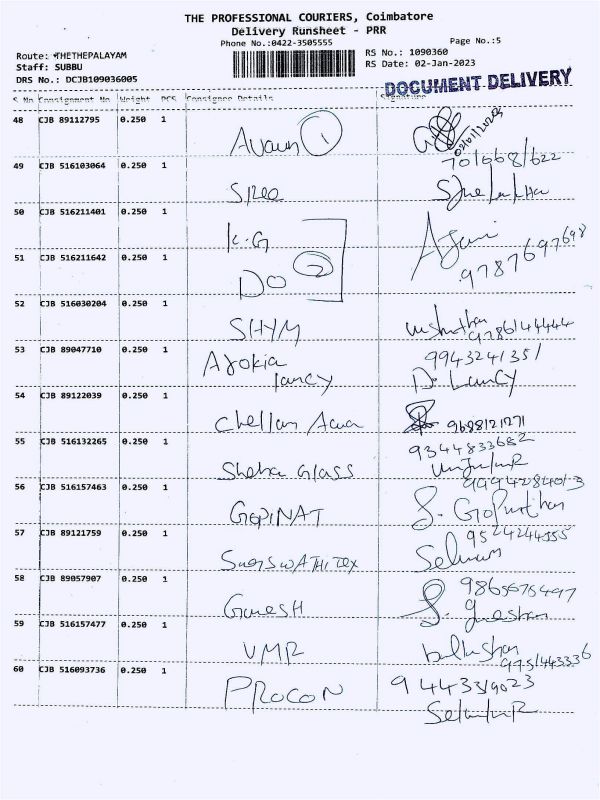 THE PROFESSIONAL COURIERS, Coimbatore
Delivery Runsheet - PRR
Phone No.:0422-3505555 Page No.:5
Route: THETHEPALAYAM RS No.: 1090360
Staff: SUBBU RS Date: 02-Jan-2023
DRS No.: DCJB109036005 DOCUMENT DELIVERY
S No Consignment No Weight PCS Consignee Details Signature
48 CJB 89112795 0.250 1 1 02/01/2023
701668/622
49 CJB 516103064 0.250 1 SREE
50 CJB 516211401 0.250 1 K.G
51 CJB 516211642 0.250 1 DO 2 9787697698
52 CJB 516030204 0.250 1 SHYM 9786144444
53 CJB 89047710 0.250 1 Arokia lancy 994324135/
D. Lancy
54 CJB 89122039 0.250 1 Chellam 9688121271
55 CJB 516132265 0.250 1 Sheba Glass 9344833682
56 CJB 516157463 0.250 1 GOPINAT 9994284013
S. Gopinathan
57 CJB 89121759 0.250 1 9524244555
Selvam
58 CJB 89057907 0.250 1 Ganesh 9865675497
S. Ganeshan
59 CJB 516157477 0.250 1 VMR 9751443336
60 CJB 516093736 0.250 1 PROCON 9443319023